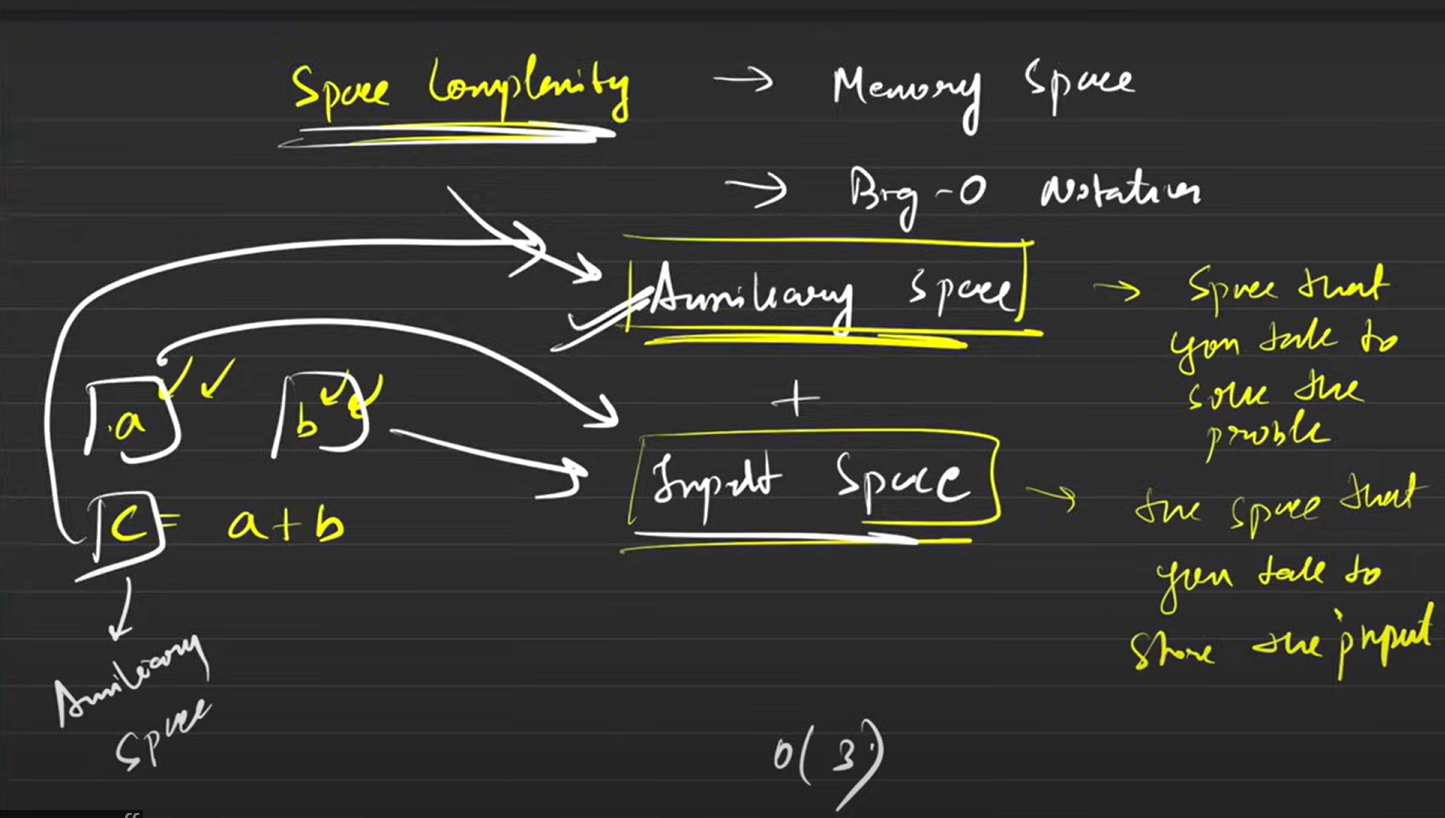 Space Complexity → Memory Space
→ Big-O Notation
Auxiliary Space → Space that
you take to
solve the
problem
+
a b
Input Space → the space that
you take to
store the input
c = a + b
Auxiliary
Space
O(3)